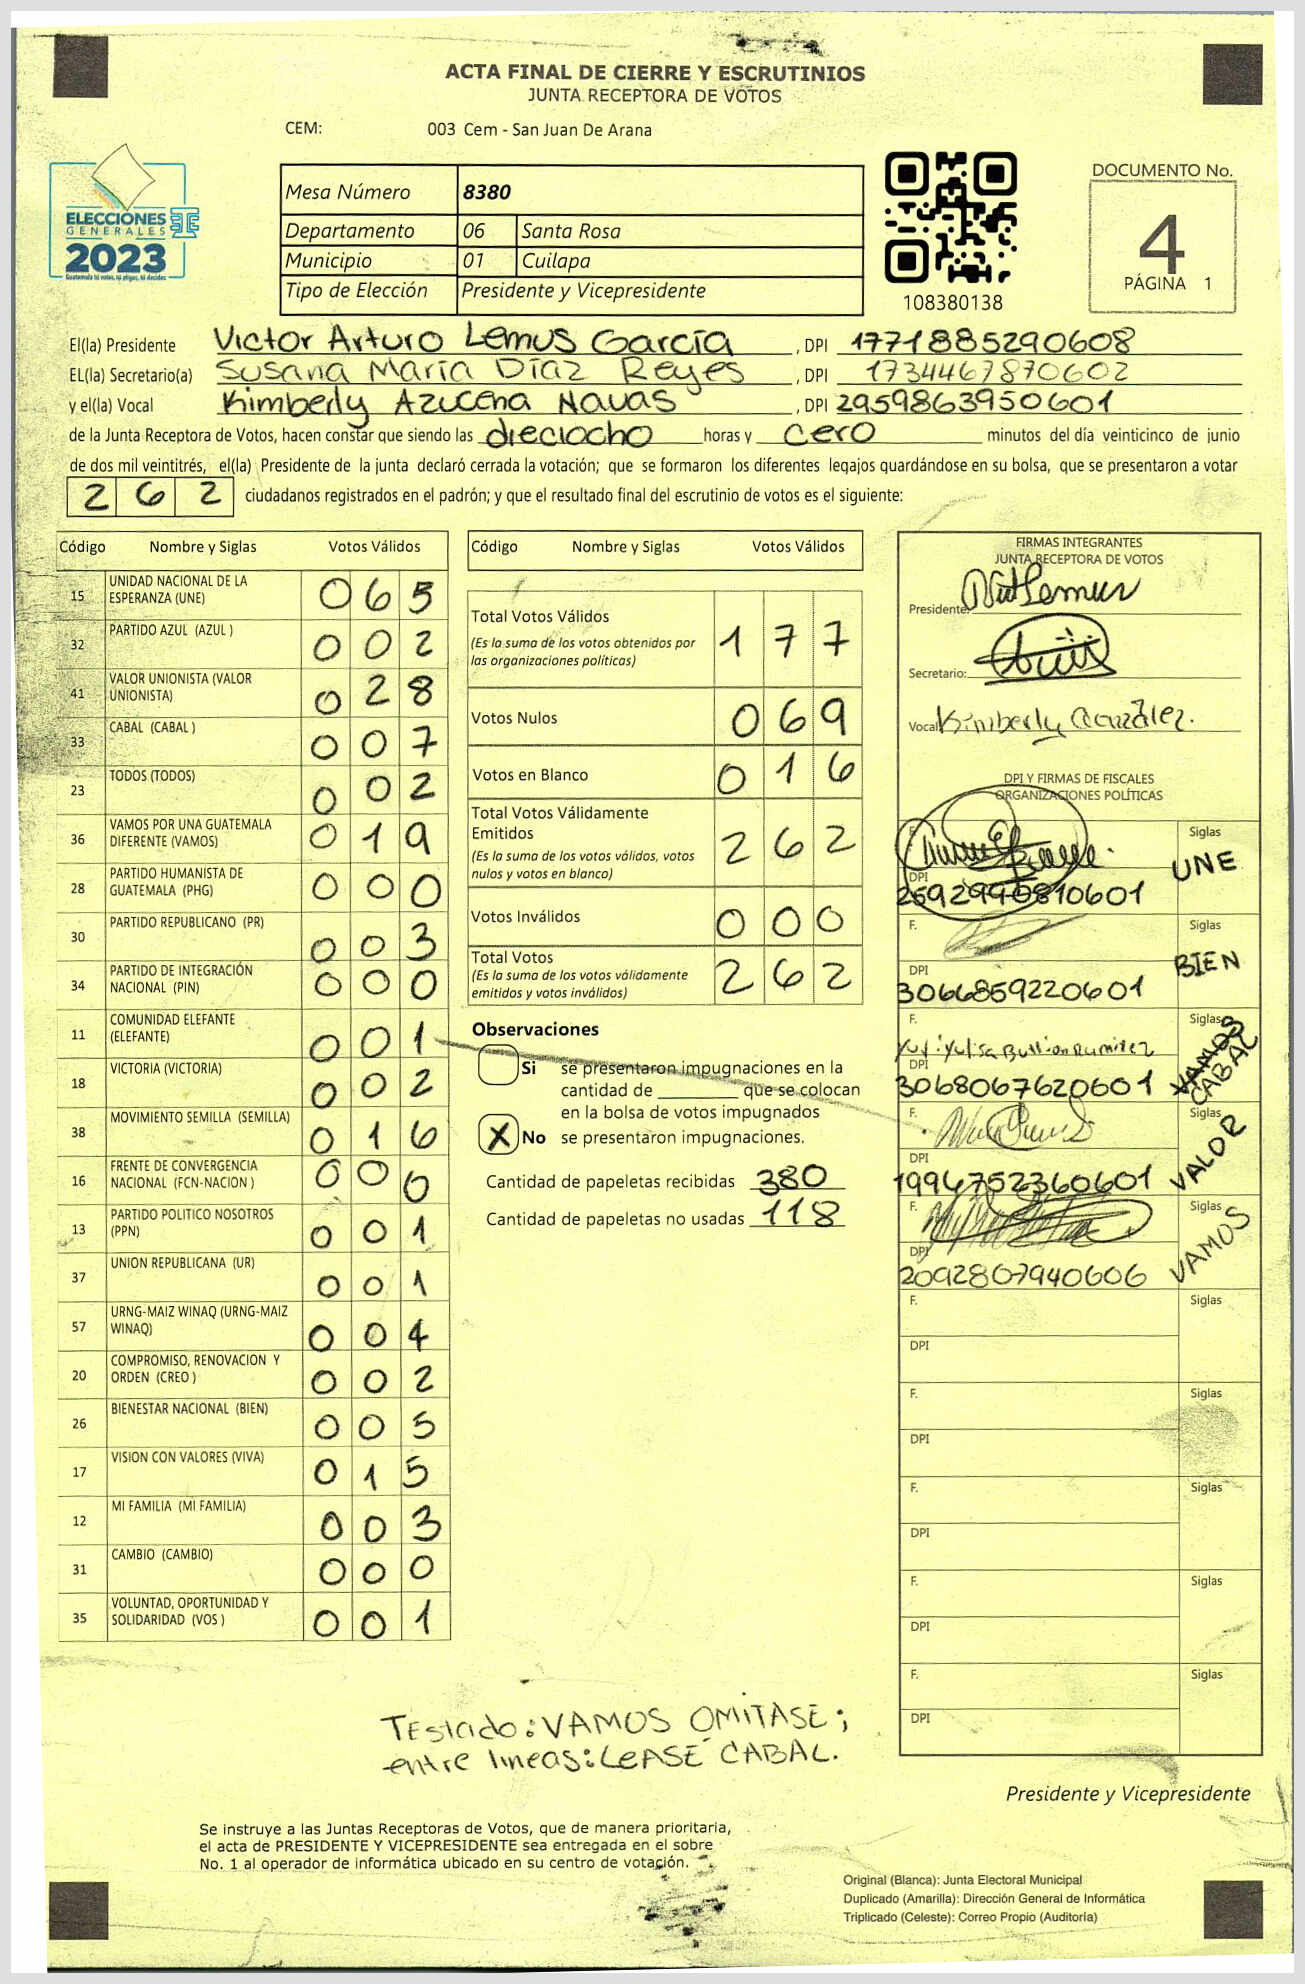 ACTA FINAL DE CIERRE Y ESCRUTINIOS
JUNTA RECEPTORA DE VOTOS
CEM: 003 Cem - San Juan De Arana
ELECCIONES
GENERALES
2023
Guatemala tú votas, tú eliges, tú decides
Mesa Número 8380
Departamento 06 Santa Rosa
Municipio 01 Cuilapa
Tipo de Elección Presidente y Vicepresidente
108380138
DOCUMENTO No.
4
PÁGINA 1
El(la) Presidente Victor Arturo Lemus García, DPI 1771885290608
EL(la) Secretario(a) Susana María Díaz Reyes, DPI 1734467870602
y el(la) Vocal Kimberly Azucena Navas, DPI 2959863950601
de la Junta Receptora de Votos, hacen constar que siendo las dieciocho horas y cero minutos del día veinticinco de junio
de dos mil veintitrés, el(la) Presidente de la junta declaró cerrada la votación; que se formaron los diferentes legajos guardándose en su bolsa, que se presentaron a votar
262 ciudadanos registrados en el padrón; y que el resultado final del escrutinio de votos es el siguiente:
Código Nombre y Siglas Votos Válidos
15 UNIDAD NACIONAL DE LA ESPERANZA (UNE) 065
32 PARTIDO AZUL (AZUL ) 002
41 VALOR UNIONISTA (VALOR UNIONISTA) 028
33 CABAL (CABAL ) 007
23 TODOS (TODOS) 002
36 VAMOS POR UNA GUATEMALA DIFERENTE (VAMOS) 019
28 PARTIDO HUMANISTA DE GUATEMALA (PHG) 000
30 PARTIDO REPUBLICANO (PR) 003
34 PARTIDO DE INTEGRACIÓN NACIONAL (PIN) 000
11 COMUNIDAD ELEFANTE (ELEFANTE) 001
18 VICTORIA (VICTORIA) 002
38 MOVIMIENTO SEMILLA (SEMILLA) 016
16 FRENTE DE CONVERGENCIA NACIONAL (FCN-NACION ) 000
13 PARTIDO POLITICO NOSOTROS (PPN) 001
37 UNION REPUBLICANA (UR) 001
57 URNG-MAIZ WINAQ (URNG-MAIZ WINAQ) 004
20 COMPROMISO, RENOVACION Y ORDEN (CREO ) 002
26 BIENESTAR NACIONAL (BIEN) 005
17 VISION CON VALORES (VIVA) 015
12 MI FAMILIA (MI FAMILIA) 003
31 CAMBIO (CAMBIO) 000
35 VOLUNTAD, OPORTUNIDAD Y SOLIDARIDAD (VOS ) 001
Código Nombre y Siglas Votos Válidos
Total Votos Válidos 177
(Es la suma de los votos obtenidos por
las organizaciones políticas)
Votos Nulos 069
Votos en Blanco 016
Total Votos Válidamente
Emitidos 262
(Es la suma de los votos válidos, votos
nulos y votos en blanco)
Votos Inválidos 000
Total Votos 262
(Es la suma de los votos válidamente
emitidos y votos inválidos)
Observaciones
Si se presentaron impugnaciones en la
cantidad de ________ que se colocan
en la bolsa de votos impugnados
X No se presentaron impugnaciones.
Cantidad de papeletas recibidas 380
Cantidad de papeletas no usadas 118
FIRMAS INTEGRANTES
JUNTA RECEPTORA DE VOTOS
Presidente:
Secretario:
Vocal Kimberly González.
DPI Y FIRMAS DE FISCALES
ORGANIZACIONES POLÍTICAS
F. Siglas UNE
DPI
2592990810601
F. Siglas BIEN
DPI
3066859220601
F. Siglas VAMOS CABAL
DPI
3068067620601
F. Siglas VALOR
DPI
1994752360601
F. Siglas VAMOS
DPI
2092807940606
F. Siglas
DPI
F. Siglas
DPI
F. Siglas
DPI
F. Siglas
DPI
F. Siglas
DPI
Testado: VAMOS OMITASE;
entre lineas: LEASE CABAL.
Presidente y Vicepresidente
Se instruye a las Juntas Receptoras de Votos, que de manera prioritaria,
el acta de PRESIDENTE Y VICEPRESIDENTE sea entregada en el sobre
No. 1 al operador de informática ubicado en su centro de votación.
Original (Blanca): Junta Electoral Municipal
Duplicado (Amarilla): Dirección General de Informática
Triplicado (Celeste): Correo Propio (Auditoría)